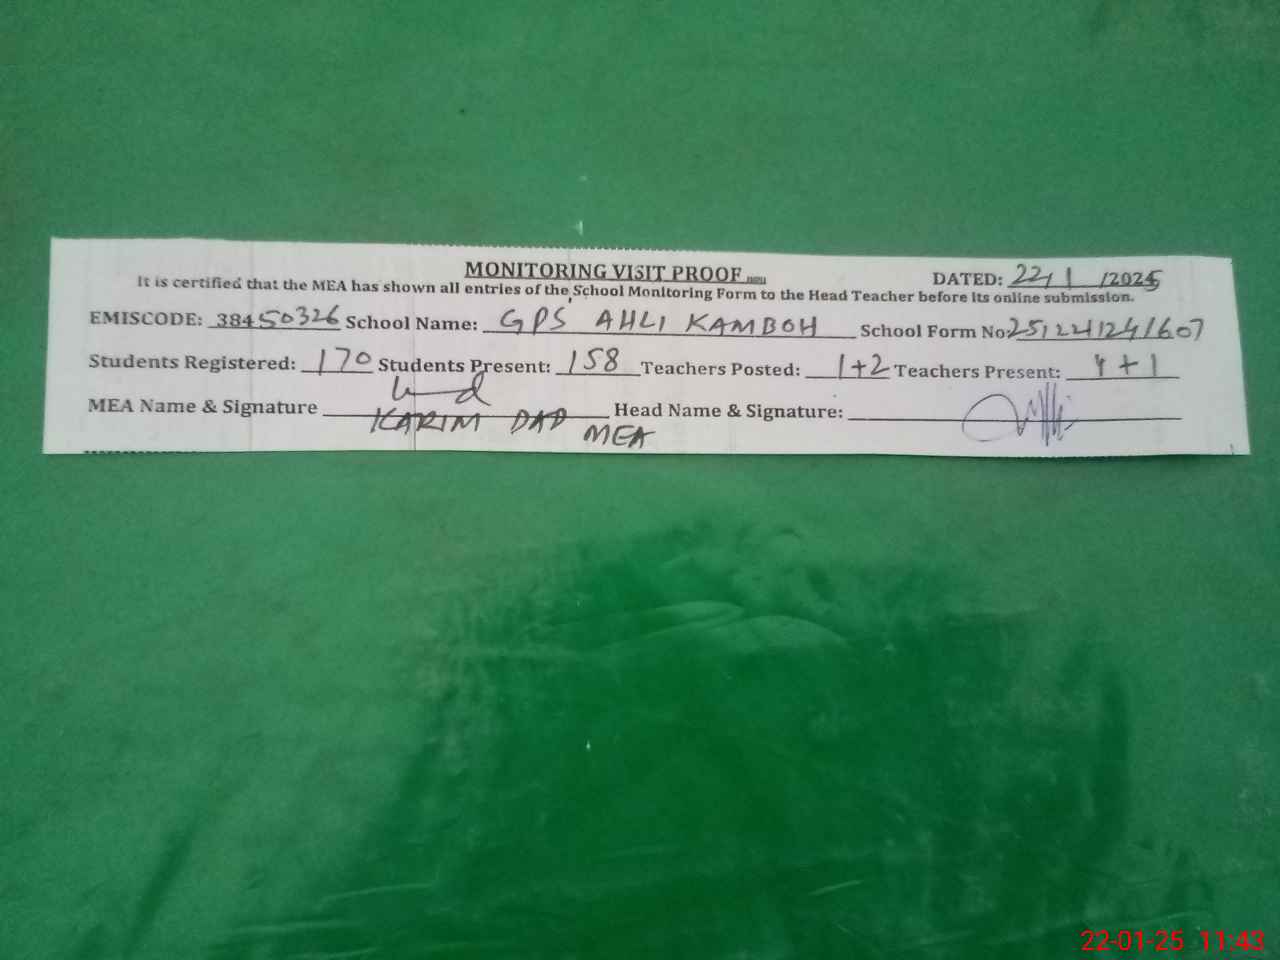 MONITORING VISIT PROOF
DATED: 22/1/2025
It is certified that the MEA has shown all entries of the School Monitoring Form to the Head Teacher before its online submission.
EMISCODE: 38450326 School Name: GPS AHLI KAMBOH School Form No: 251221241607
Students Registered: 170 Students Present: 158 Teachers Posted: 1+2 Teachers Present: + 1
MEA Name & Signature KARIM DAD Head Name & Signature:
MEA
22-01-25 11:43